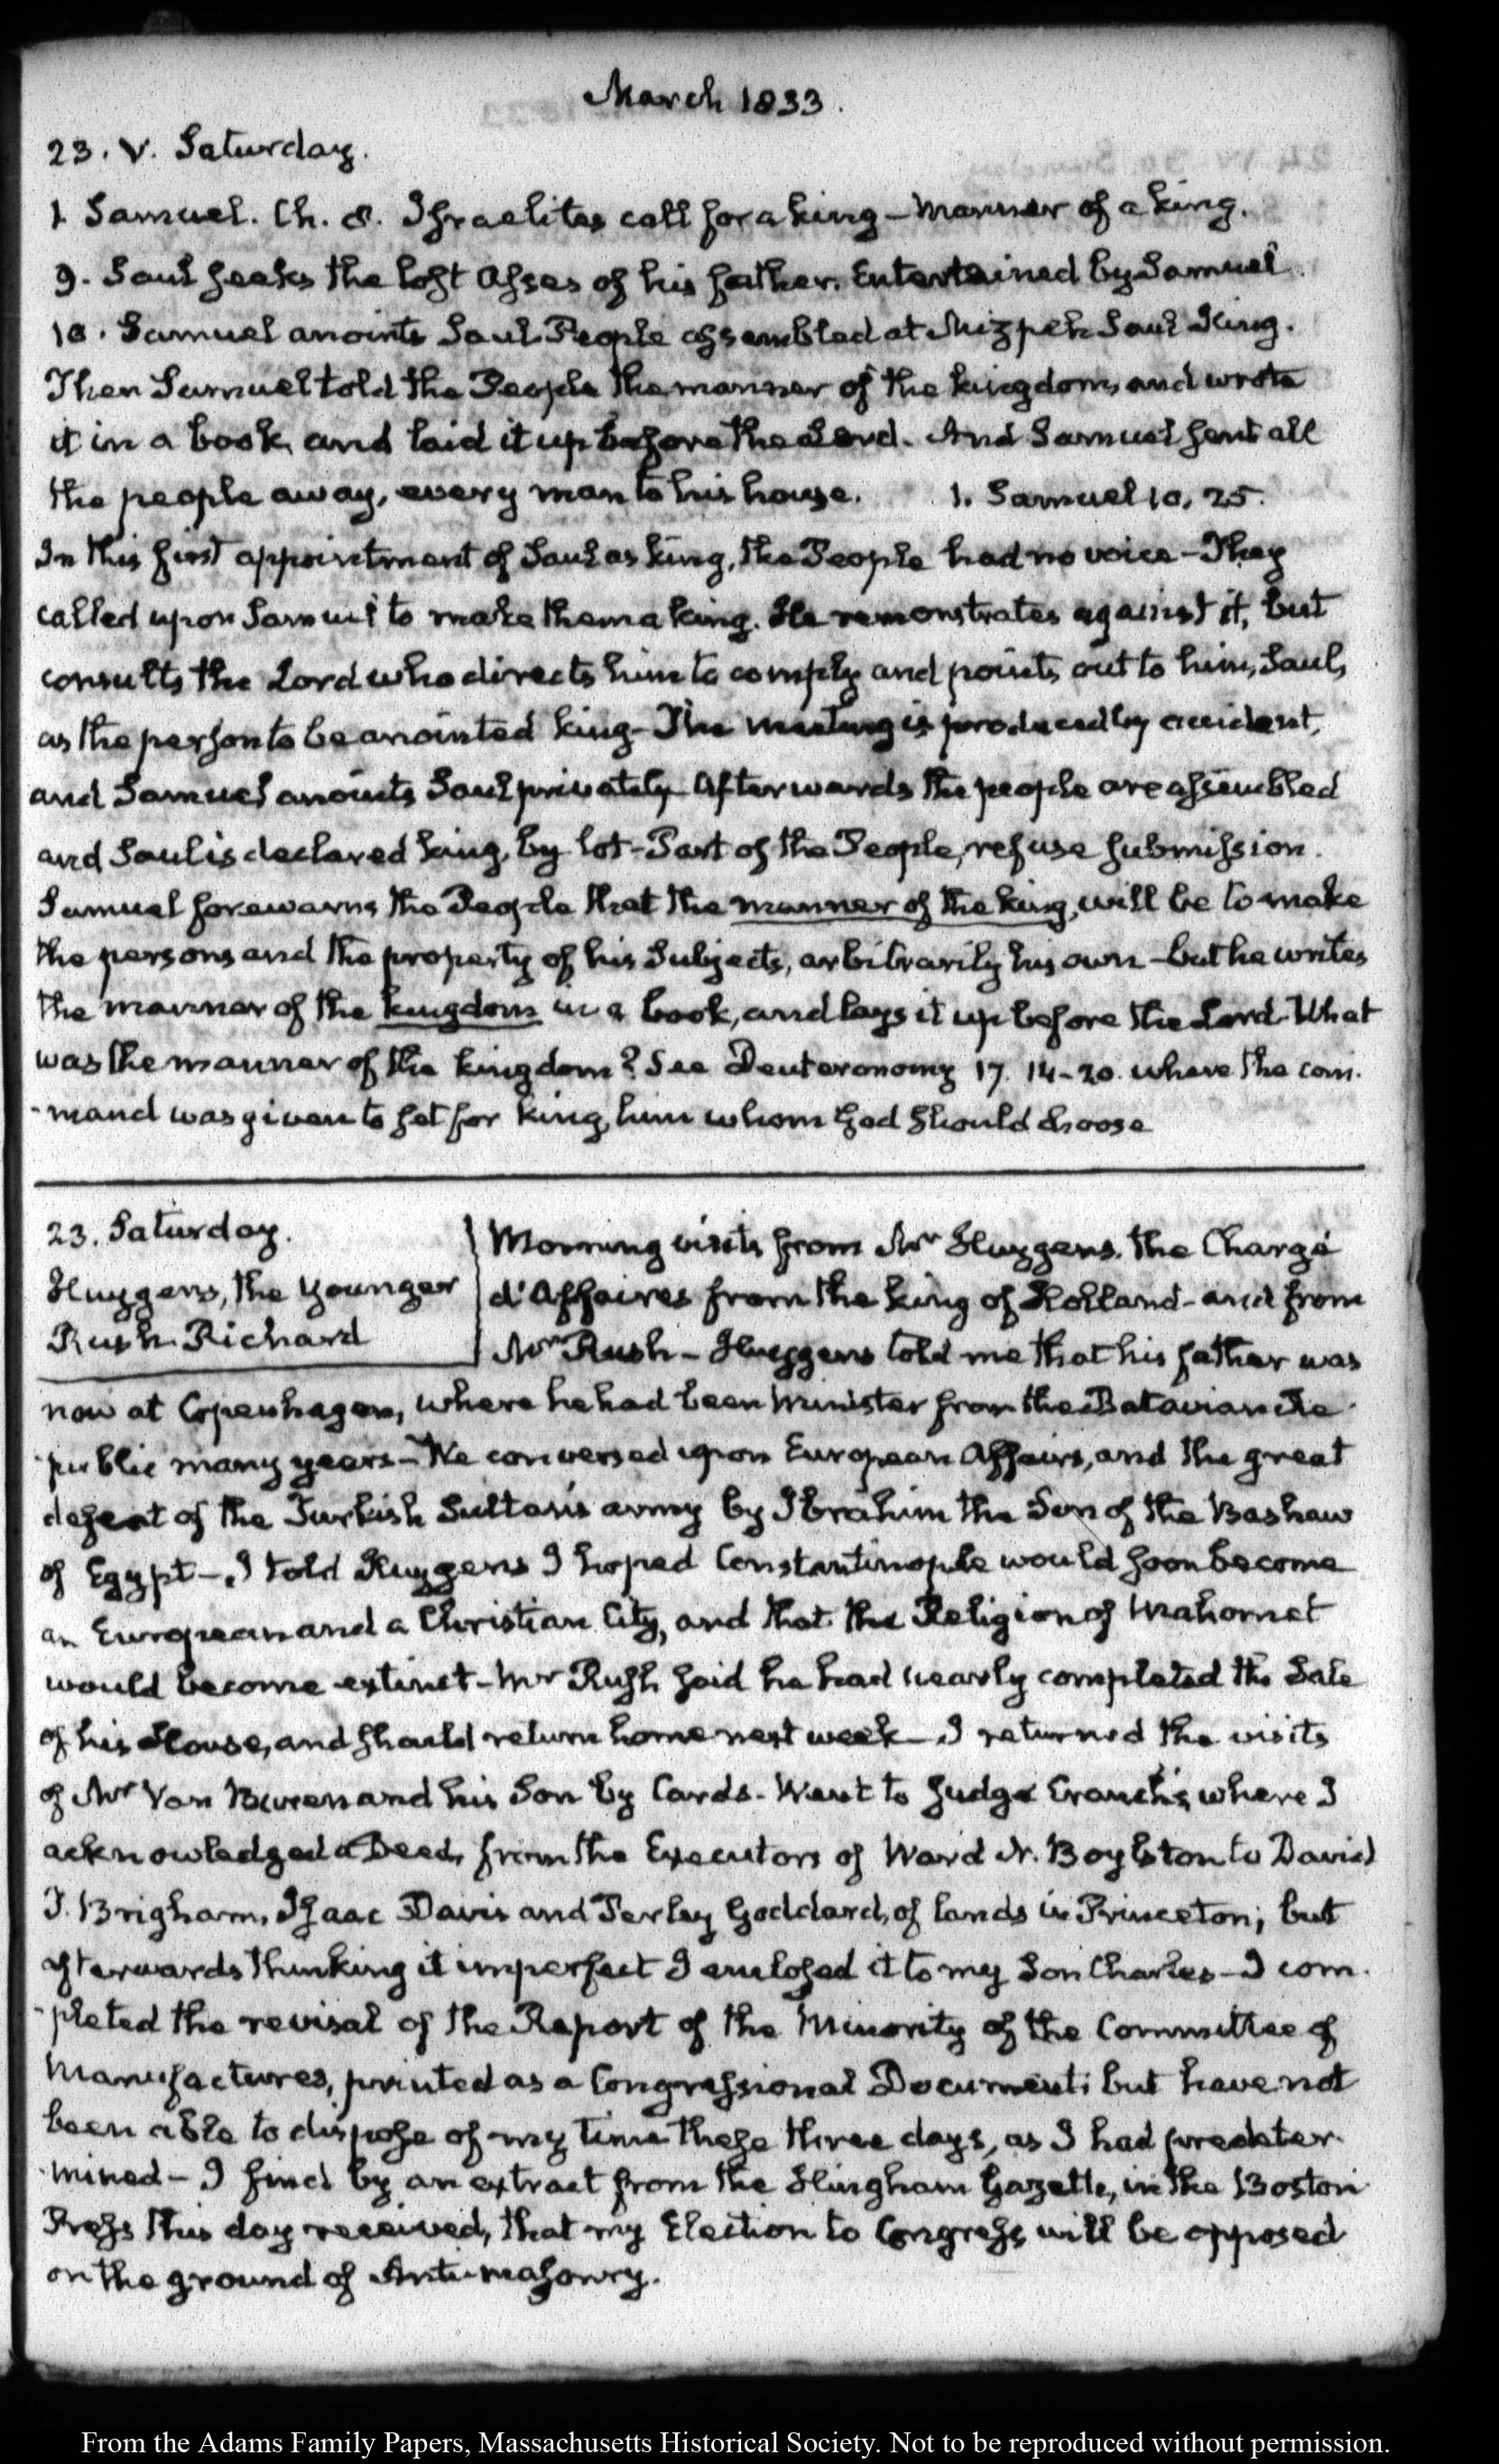 March 1833.
23. V. Saturday.
1. Samuel. Ch. 8. Israelites call for a king – manner of a king.
9. Saul seeks the lost Asses of his father. Entertained by Samuel.
10. Samuel anoints Saul. People assembled at Mizpeh Saul King.
Then Samuel told the People the manner of the kingdom, and wrote
it in a book, and laid it up before the Lord. And Samuel sent all
the people away, every man to his house. 1. Samuel 10, 25.
In this first appointment of Saul as king, the People had no voice – They
called upon Samuel to make them a king. He remonstrates against it, but
consults the Lord who directs him to comply and points out to him, Saul,
as the person to be anointed king – The meeting is produced by accident,
and Samuel anoints Saul privately – Afterwards the people are assembled
and Saul is declared king, by lot – Part of the People, refuse submission.
Samuel forewarns the People that the manner of the king, will be to make
the persons and the property of his Subjects, arbitrarily his own – but he writes
the manner of the kingdom in a book, and lays it up before the Lord – What
was the manner of the kingdom? See Deuteronomy 17. 14–20. where the com-
-mand was given to set for king, him whom God should choose
23. Saturday.
Huygens, the Younger
Rush Richard
Morning visits from Mr Huygens, the Chargé
d'Affaires from the king of Holland – and from
Mr Rush – Huygens told me that his father was
now at Copenhagen, where he had been Minister from the Batavian Re-
-public many years – We conversed upon European Affairs, and the great
defeat of the Turkish Sultan's army by Ibrahim the Son of the Bashaw
of Egypt – I told Huygens I hoped Constantinople would soon become
an European and a Christian City, and that the Religion of Mahomet
would become extinct – Mr Rush said he had nearly completed the Sale
of his House, and should return home next week – I returned the visits
of Mr Van Buren and his Son by Cards – Went to Judge Cranch's, where I
acknowledged a Deed, from the Executors of Ward N. Boylston to David
T. Brigham, Isaac Davis and Perley Goddard, of lands in Princeton; but
afterwards thinking it imperfect I enclosed it to my Son Charles – I com-
-pleted the revisal of the Report of the Minority of the Committee of
Manufactures, printed as a Congressional Document; but have not
been able to dispose of my time these three days, as I had predeter-
-mined – I find by an extract from the Hingham Gazette, in the Boston
Press this day received, that my Election to Congress, will be opposed
on the ground of Anti-masonry.
From the Adams Family Papers, Massachusetts Historical Society. Not to be reproduced without permission.